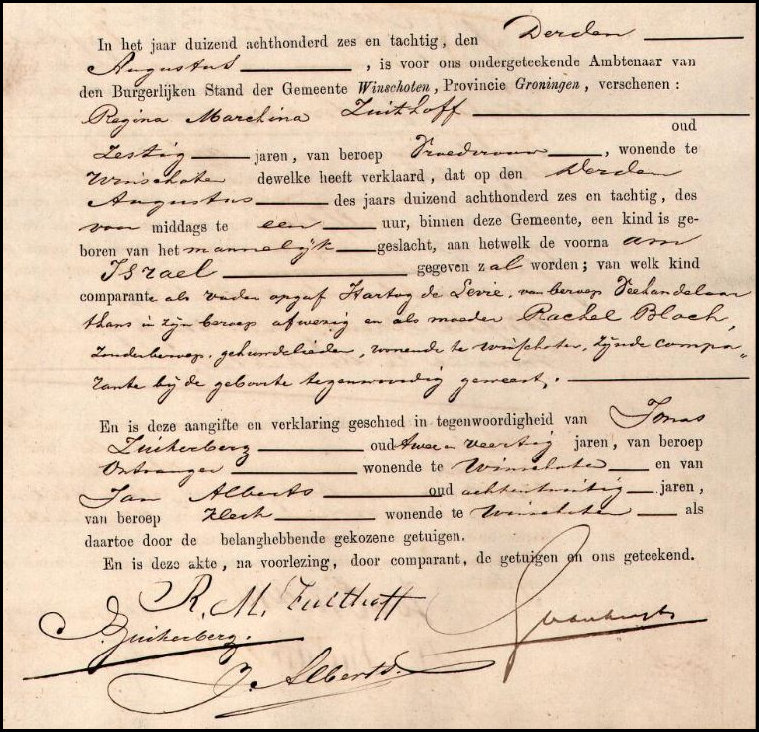 In het jaar duizend achthonderd zes en tachtig, den Derden
Augustus, is voor ons ondergeteekende Ambtenaar van
den Burgerlijken Stand der Gemeente Winschoten, Provincie Groningen, verschenen:
Regina Marchina Zuithoff
oud
Zestig jaren, van beroep Vroedvrouw, wonende te
Winschoten dewelke heeft verklaard, dat op den Derden
Augustus des jaars duizend achthonderd zes en tachtig, des
voor middags te een uur, binnen deze Gemeente, een kind is ge-
boren van het mannelijk geslacht, aan hetwelk de voorna am
Israel gegeven zal worden; van welk kind
comparante als vader opgaf Hartog de Levie, van beroep Veehandelaar
thans in zijn beroep afwezig en als moeder Rachel Bloch,
zonder beroep, gehuwdelieden, wonende te Winschoten, zijnde compa„
rante bij de geboorte tegenwoordig geweest.
En is deze aangifte en verklaring geschied in tegenwoordigheid van Jonas
Zuikerberg oud twee en veertig jaren, van beroep
Ontvanger wonende te Winschoten en van
Jan Alberts oud achtentwintig jaren,
van beroep Klerk wonende te Winschoten als
daartoe door de belanghebbende gekozene getuigen.
En is deze akte, na voorlezing, door comparant, de getuigen en ons geteekend.
R. M. Zuithoff
J. Zuikerberg.
J. Alberts.